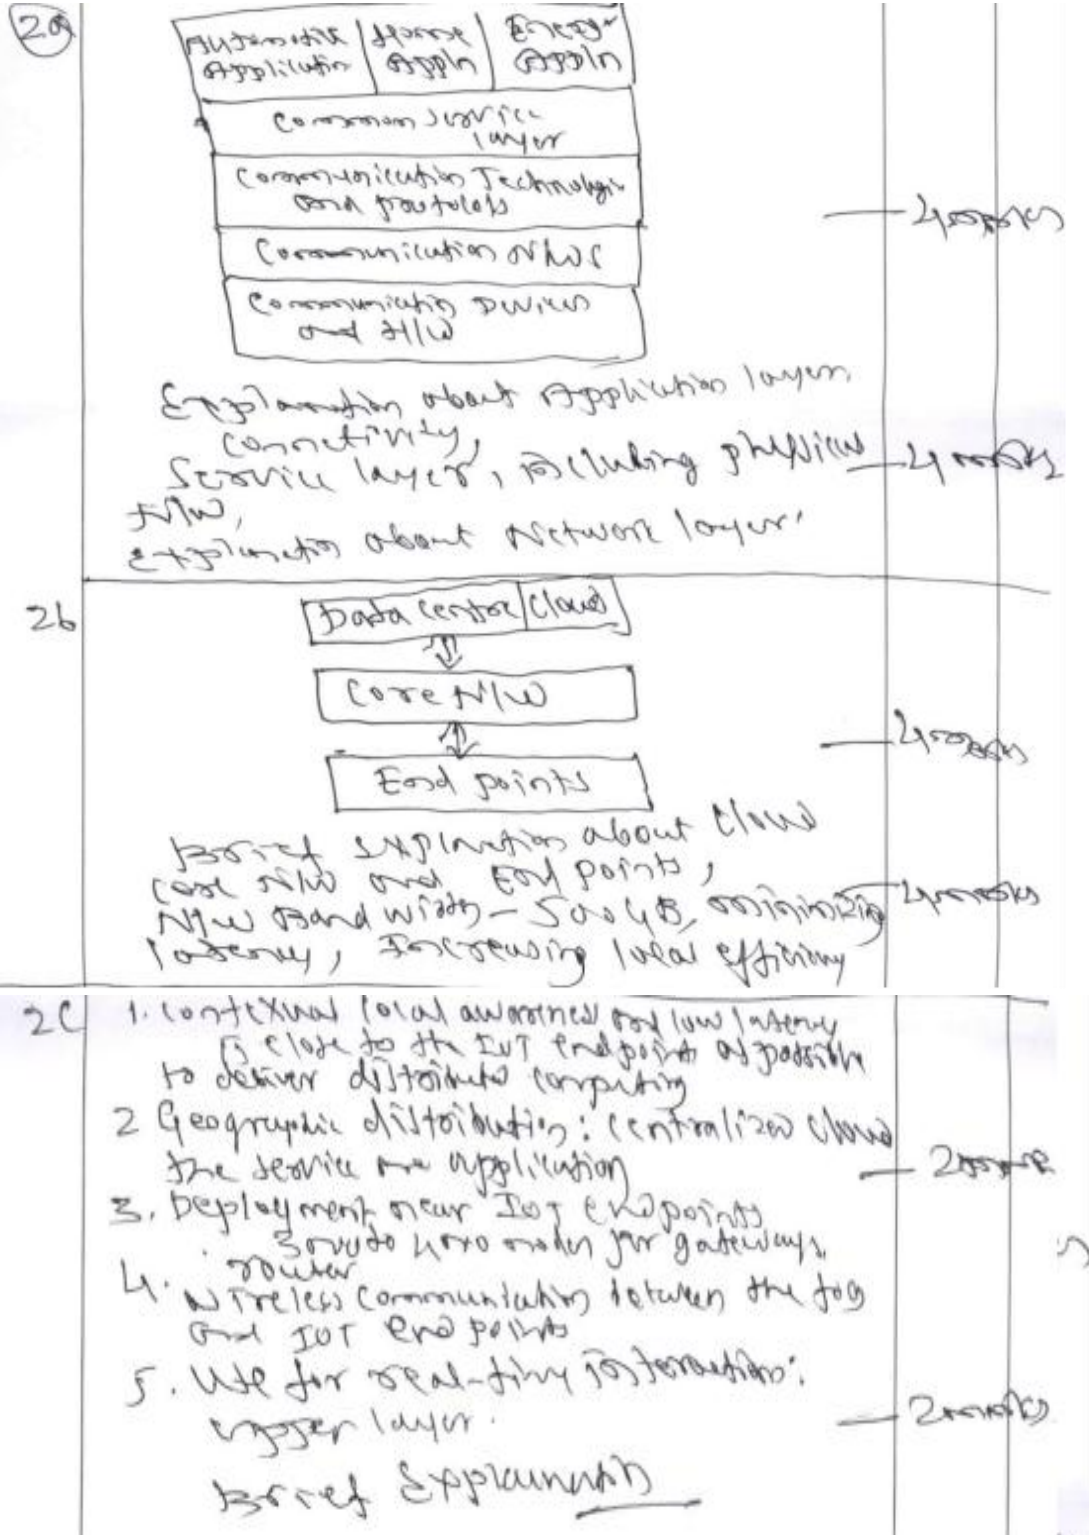 2a
Automotive Application | Home Appln | Energy Appln
Common Service
layer
Communication Technologi
and protocols
Communication N/WS
Communication Devices
and H/W
4 marks
Explanation about Application layer,
Connectivity,
Service layer, including physical
N/W,
4 marks
Explanation about Network layer.
2b
Data centre | Cloud
Core N/W
4 marks
End points
Brief explanation about cloud
core N/W and End points,
N/W Band width - 500 GB, minimizing
4 marks
latency, Increasing local efficiency
2c
1. Contextual local awareness and low latency
is close to the IoT endpoint as possible
to deliver distributed computing
2 Geographic distribution: centralized cloud
the service are application
2
3. Deployment near IoT endpoints
3000 to 4000 nodes for gateways,
router
4. Wireless communication between the fog
and IOT end points
5. Use for real-time interaction:
2 marks
layer.
Brief Explanation